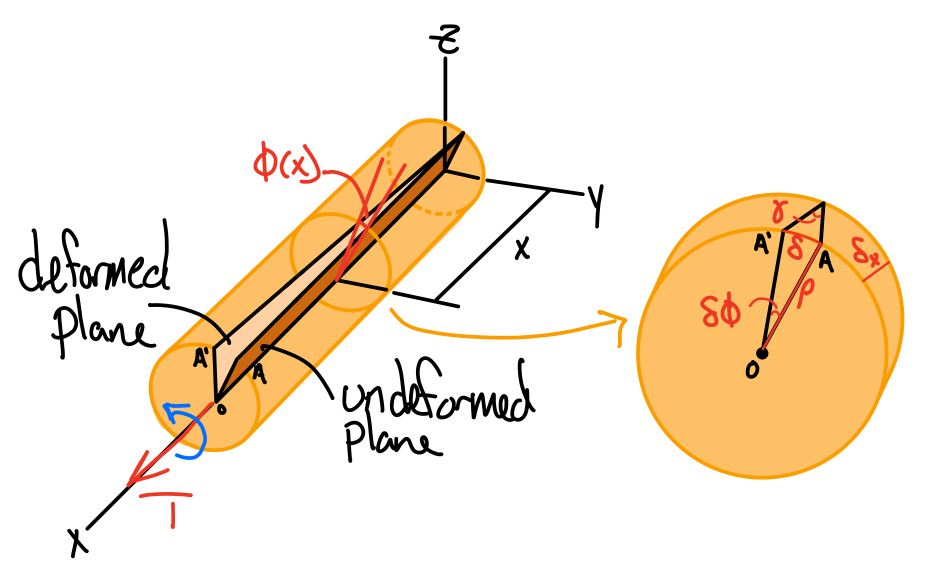 z
φ(x)
y
x
deformed
plane
A'
A
o
undeformed
plane
T
x
γ
A'
δ
A
δx
δφ
ρ
o